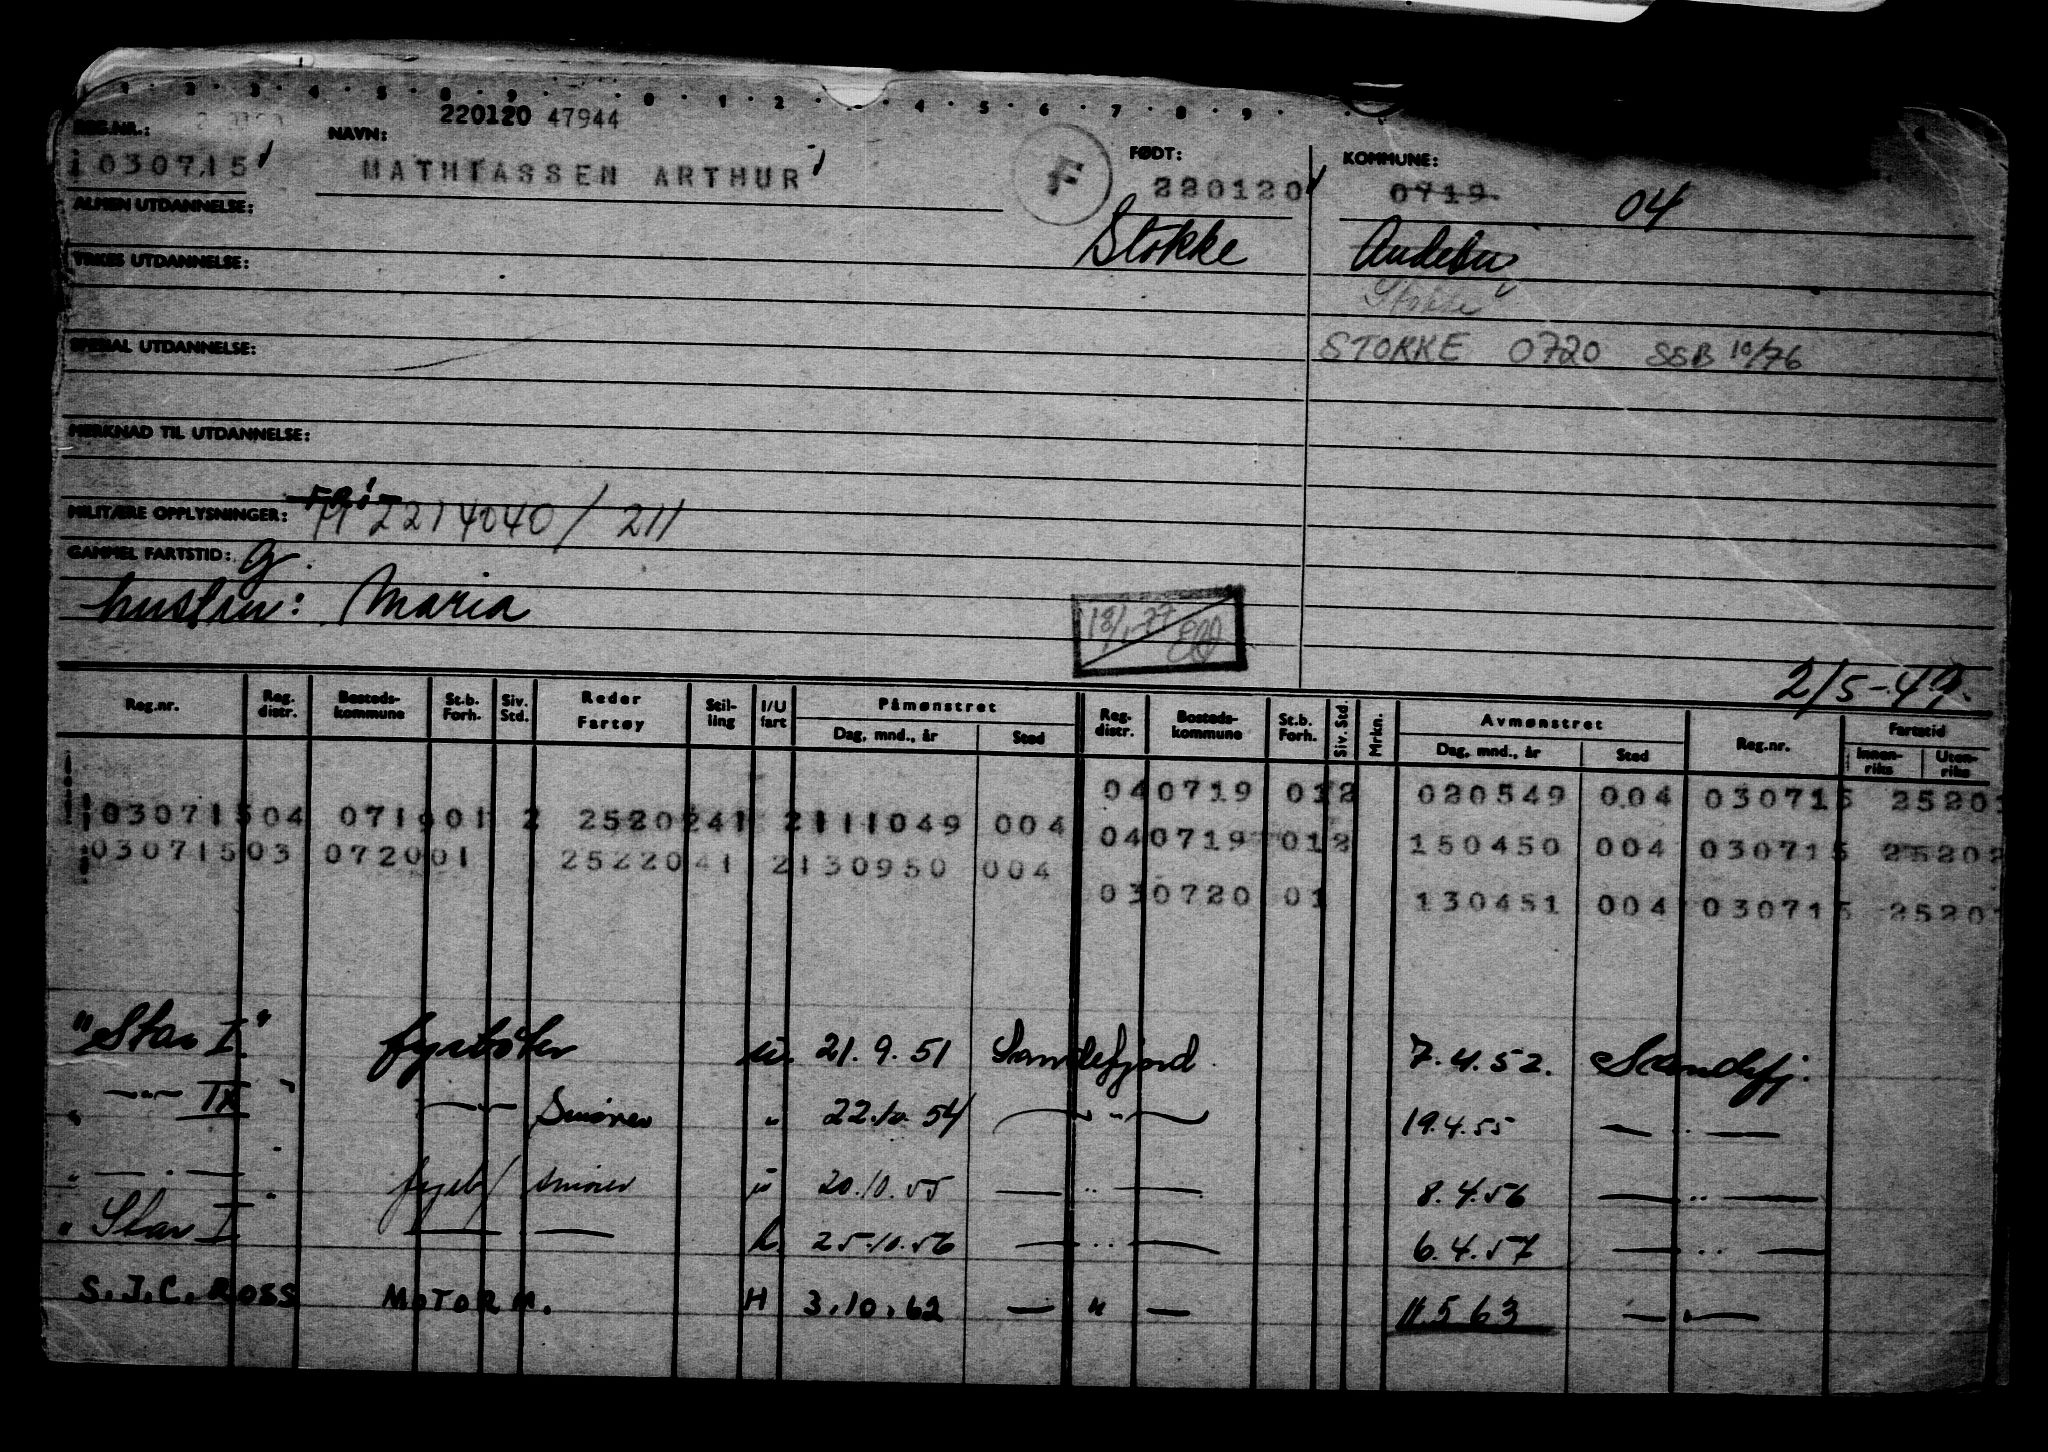 220120 47944
REG.NR.: NAVN: FØDT: KOMMUNE:
030715 MATHIASSEN ARTHUR F 220120 0719 04
ALMEN UTDANNELSE: Stokke Andebu
YRKES UTDANNELSE:
Stokke
SPESIAL UTDANNELSE: STOKKE 0720 SSB 10/76
MERKNAD TIL UTDANNELSE:
MILITÆRE OPPLYSNINGER: 2214040/211
GAMMEL FARTSTID: g.
hustru: Maria
18/1-77
2/5-49.
Reg.nr. Reg. distr. Bosteds-kommune St.b. Forh. Siv. Std. Reder Fartøy Stil-ling I/U fart Påmønstret Dag, mnd., år Sted Reg. distr. Bosteds-kommune St.b. Forh. Siv. Std. Mrkn. Avmønstret Dag, mnd., år Sted Reg.nr. Fartstid Innen-riks Uten-riks
040719 012 020549 004 030715 2520
03071504 071901 2 2520241 2111049 004
040719 012 150450 004 030715 25202
03071503 072001 2522041 2130950 004
030720 01 130451 004 030715 2520
"Star I" fyrbøter u. 21.9.51 Sandefjord 7.4.52. Sandefj.
" —"— IX " —"— Smører " 22.10.54 — " — 19.4.55 — " —
" — . — " fyrb/ smører u 20.10.55 — " — 8.4.56 — " —
" Star I " — — h. 25.10.56 — " — 6.4.57 — " —
S.J.C. ROSS MOTORM. H 3.10.62 — " — 11.5 63 — " —